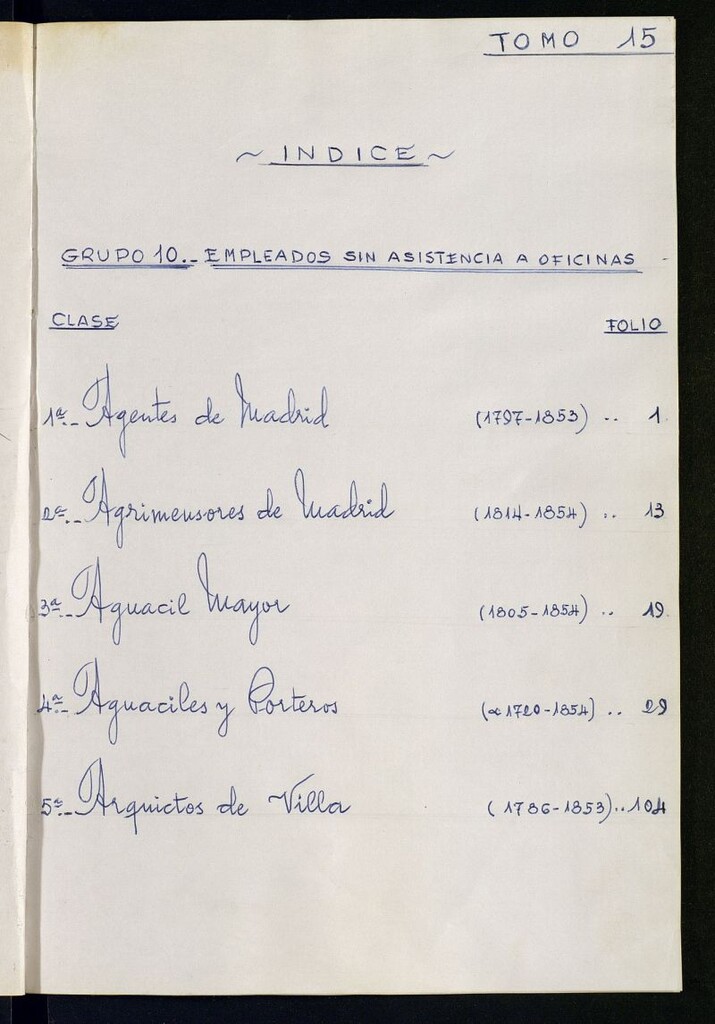 TOMO 15
~ INDICE ~
GRUPO 10.- EMPLEADOS SIN ASISTENCIA A OFICINAS
CLASE FOLIO
1ª.- Agentes de Madrid (1797-1853) .. 1
2ª.- Agrimensores de Madrid (1814-1854) .. 13
3ª.- Aguacil Mayor (1805-1854) .. 19
4ª.- Aguaciles y Porteros (α 1720-1854) .. 29
5ª.- Arquictos de Villa (1786-1853) .. 104